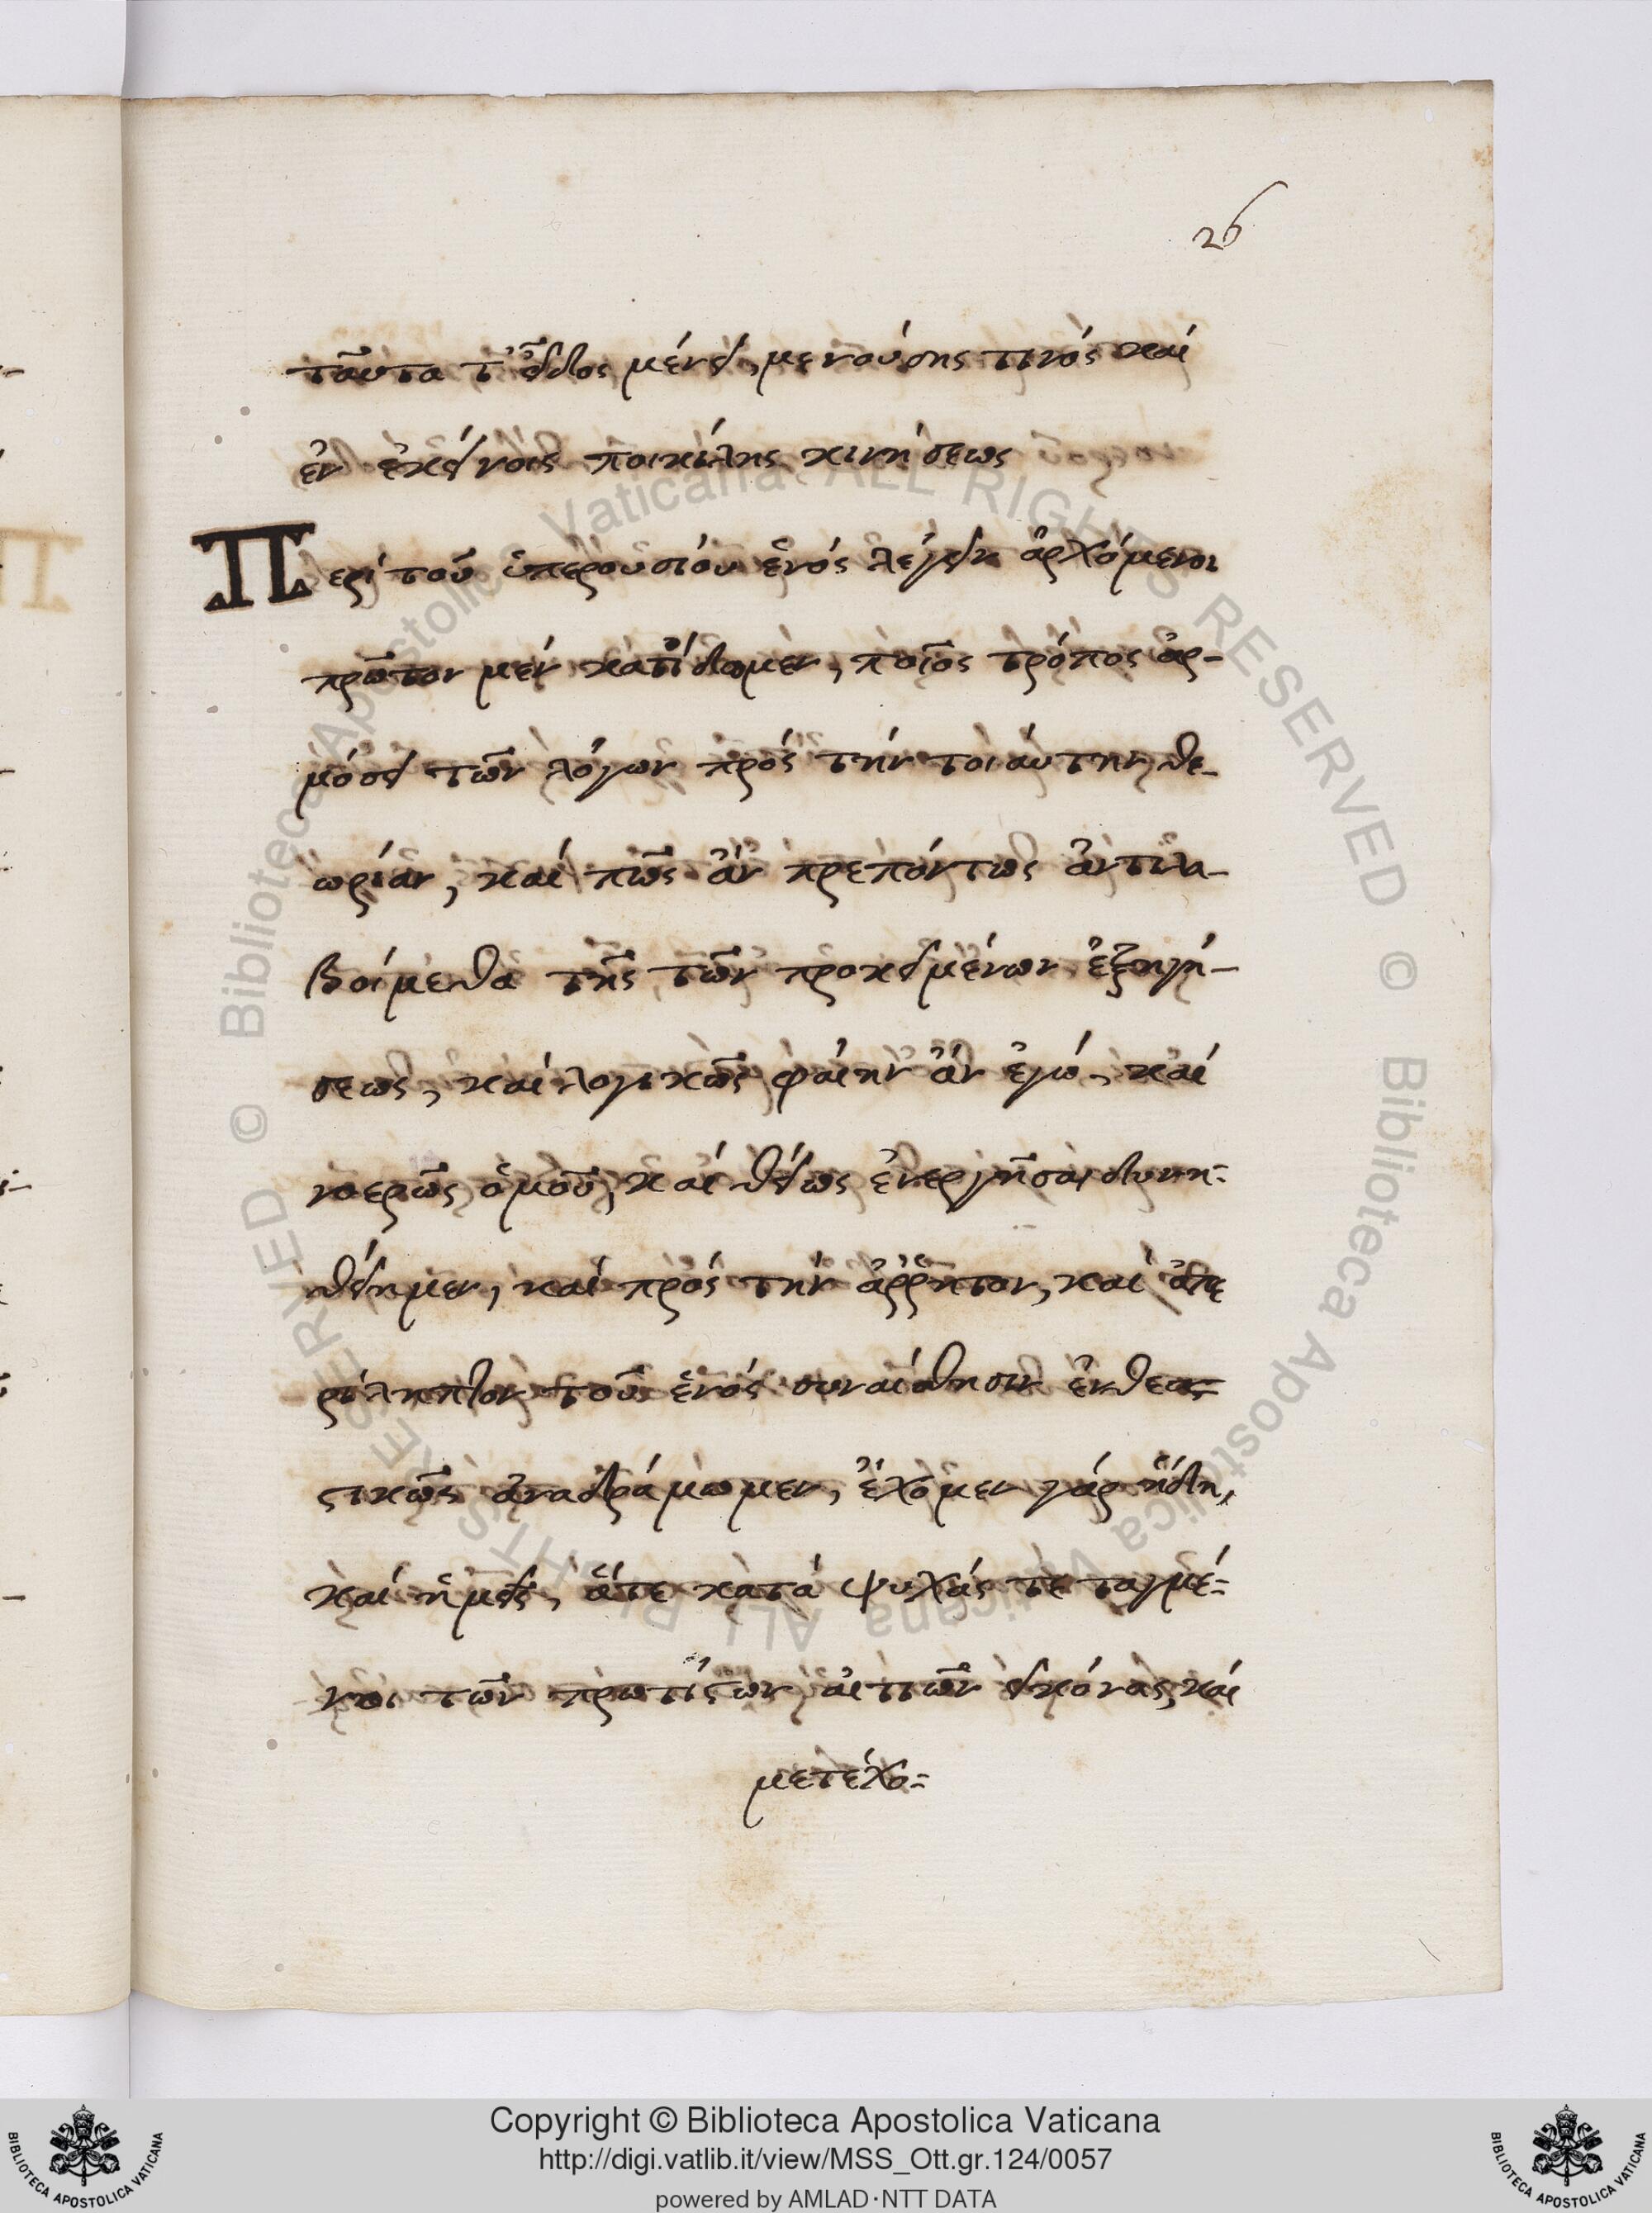 26
ταῦτα τ' εἶδος μένει, μενούσης τινός καί
ἐν ἐκείνοις ποικίλης κινήσεως
Περί τοῦ ὑπερουσίου ἑνός λέγειν ἀρχόμενοι
πρῶτον μέν κατίδωμεν, ποῖος τρόπος ἁρ-
μόσει τῶν λόγων πρός τήν τοιαύτην θε-
ωρίαν, καί πῶς ἄν πρεπόντως ἀντιλα-
βοίμεθα τῆς τῶν προκειμένων ἐξηγή-
σεως, καί λογικῶς φαίην ἄν ἐγώ, καί
νοερῶς ὁμοῦ, καί θείως ἐνεργῆσαι δυνη-
θείημεν, καί πρός τήν ἄῤῥητον, καί ἀπε
ρίληπτον τοῦ ἑνός συναίσθησιν ἐνθεα-
στικῶς ἀναδράμωμεν, ἔχομεν γάρ ἤδη,
καί ἡμεῖς, ἅτε κατά ψυχάς τεταγμέ-
νοι τῶν πρωτίστων αἰτιῶν εἰκόνας, καί
μετέχο-
Copyright © Biblioteca Apostolica Vaticana
http://digi.vatlib.it/view/MSS_Ott.gr.124/0057
powered by AMLAD·NTT DATA
© Biblioteca Apostolica Vaticana ALL RIGHTS RESERVED © Biblioteca Apostolica Vaticana ALL RIGHTS RESERVED
BIBLIOTECA APOSTOLICA VATICANA
BIBLIOTECA APOSTOLICA VATICANA